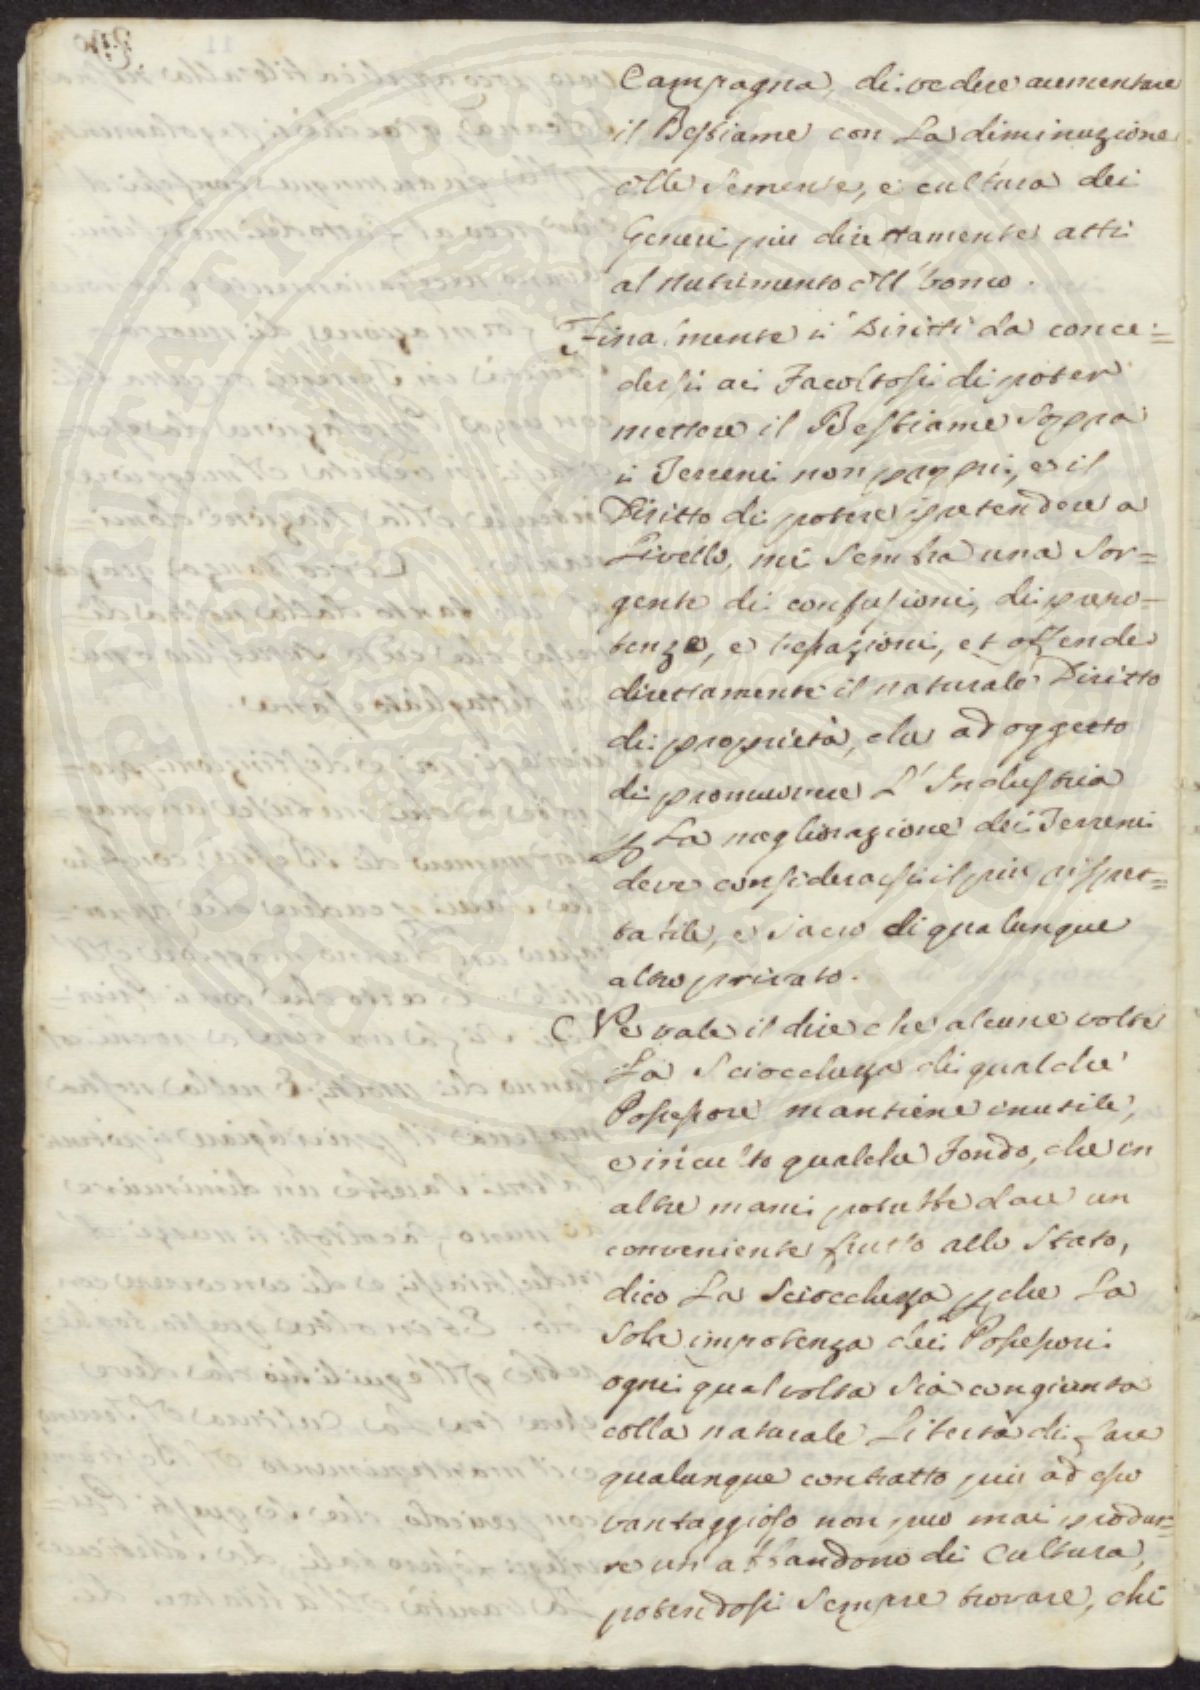 Campagna, di vedere aumentare
il Bestiame con la diminuzione
delle Semente, e cultura dei
Generi più direttamente atti
al Nutrimento dell'Uomo.
Finalmente i Diritti da conce=
dersi ai Facoltosi di poter
mettere il Bestiame Sopra
i Terreni non proprj, e il
Diritto di potere pretendere a
Livello, mi Sembra una Sor=
gente di confusioni, di prepo=
tenze, e vessazioni, et offende
direttamente il naturale Diritto
di proprietà, che ad oggetto
di promuovere L'Industria
p La megliorazione dei Terreni
deve considerarsi il più rispet=
tabile, e Sacro di qualunque
altro privato.
Ne vale il dire che alcune volte
La Sciocchezza di qualche
Possessore mantiene inutile,
e incolto qualche Fondo, che in
altre mani potrebbe dare un
conveniente frutto allo Stato,
dico La Sciocchezza pche La
Sola impotenza dei Possessori
ogni qual volta Sia congiunta
colla naturale Libertà di fare
qualunque contratto più ad esso
vantaggioso non può mai produr=
re un abbandono di Cultura,
potendosi Sempre trovare, chi